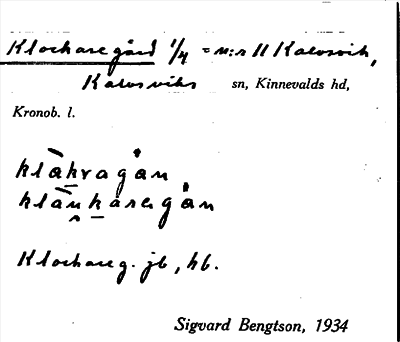 Klockaregård 1/4 = n:r 11 Kalvsvik,
Kalvsviks sn, Kinnevalds hd,
Kronob. l.
klàkragån
klàṋkaregån
Klockareg. jb, hb.
Sigvard Bengtson, 1934